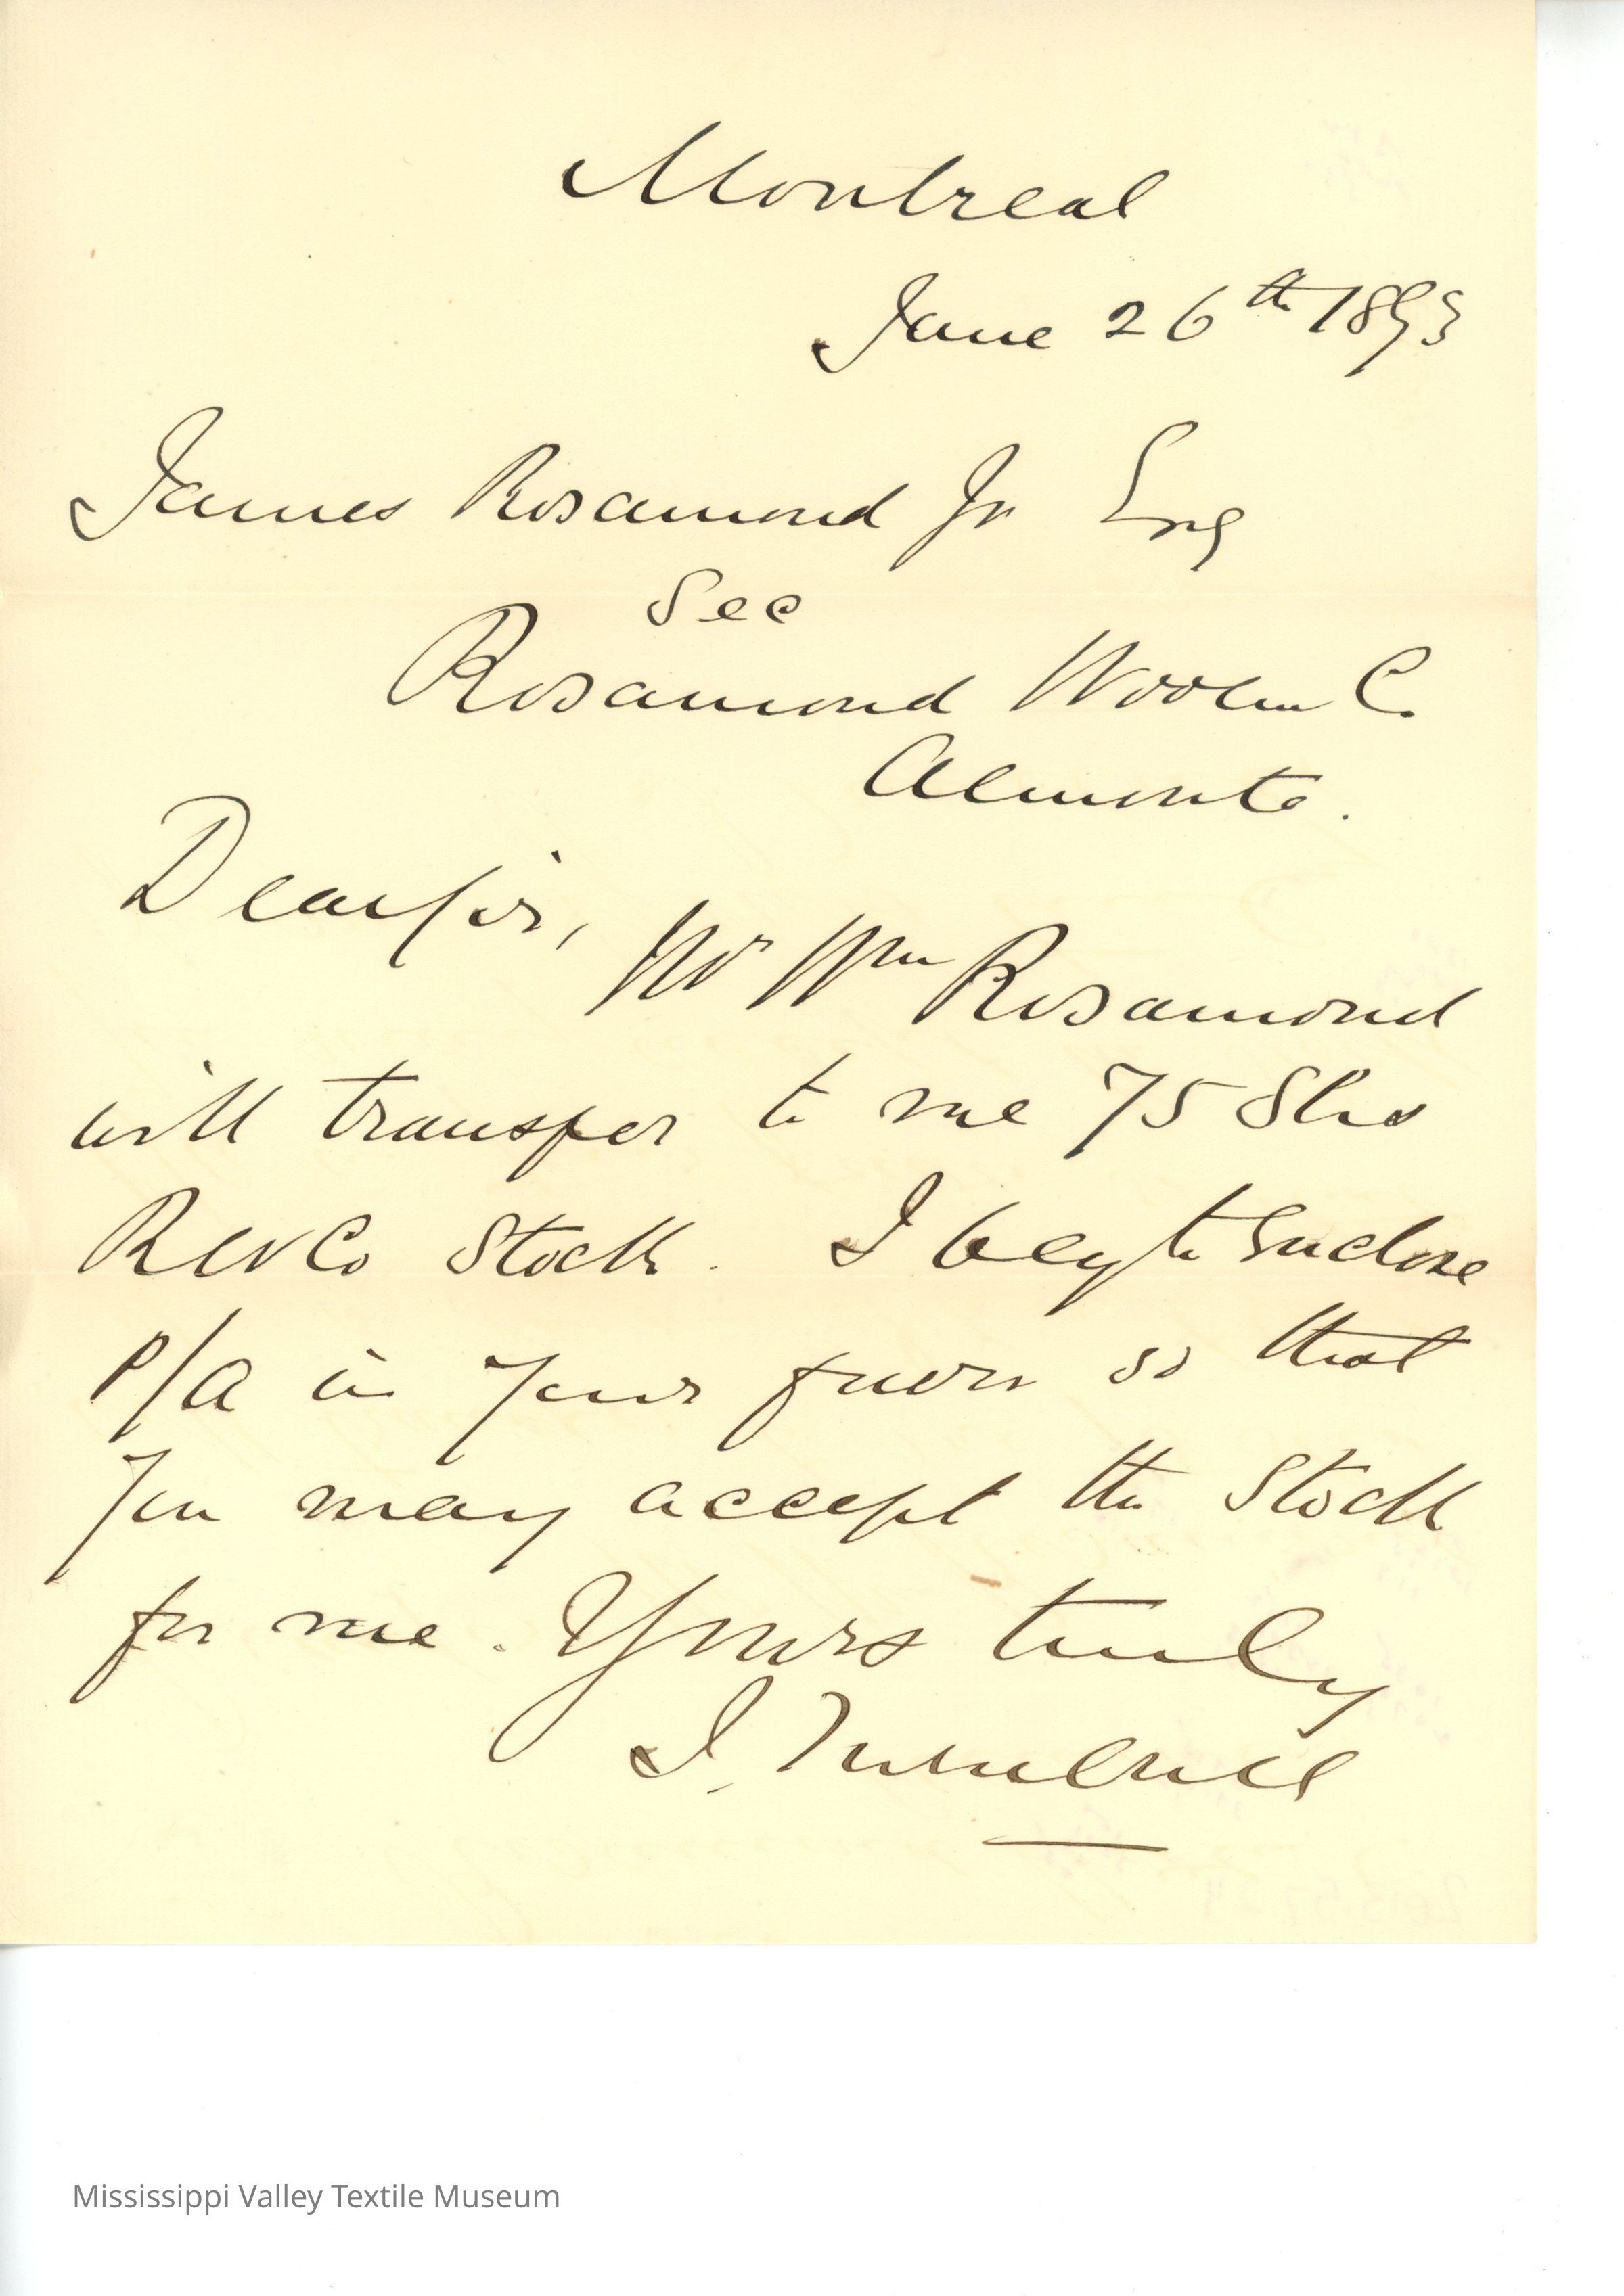 Montreal
June 26th 1893
James Rosamond Jr Esq
Sec
Rosamond Woolen Co.
Almonte.
Dear Sir,
Mr Wm Rosamond
will transfer to me 75 Shs
RWCo Stock. I beg to Enclose
P/A in your favor so that
you may accept the Stock
for me. Yours truly
J. Turnbull
Mississippi Valley Textile Museum